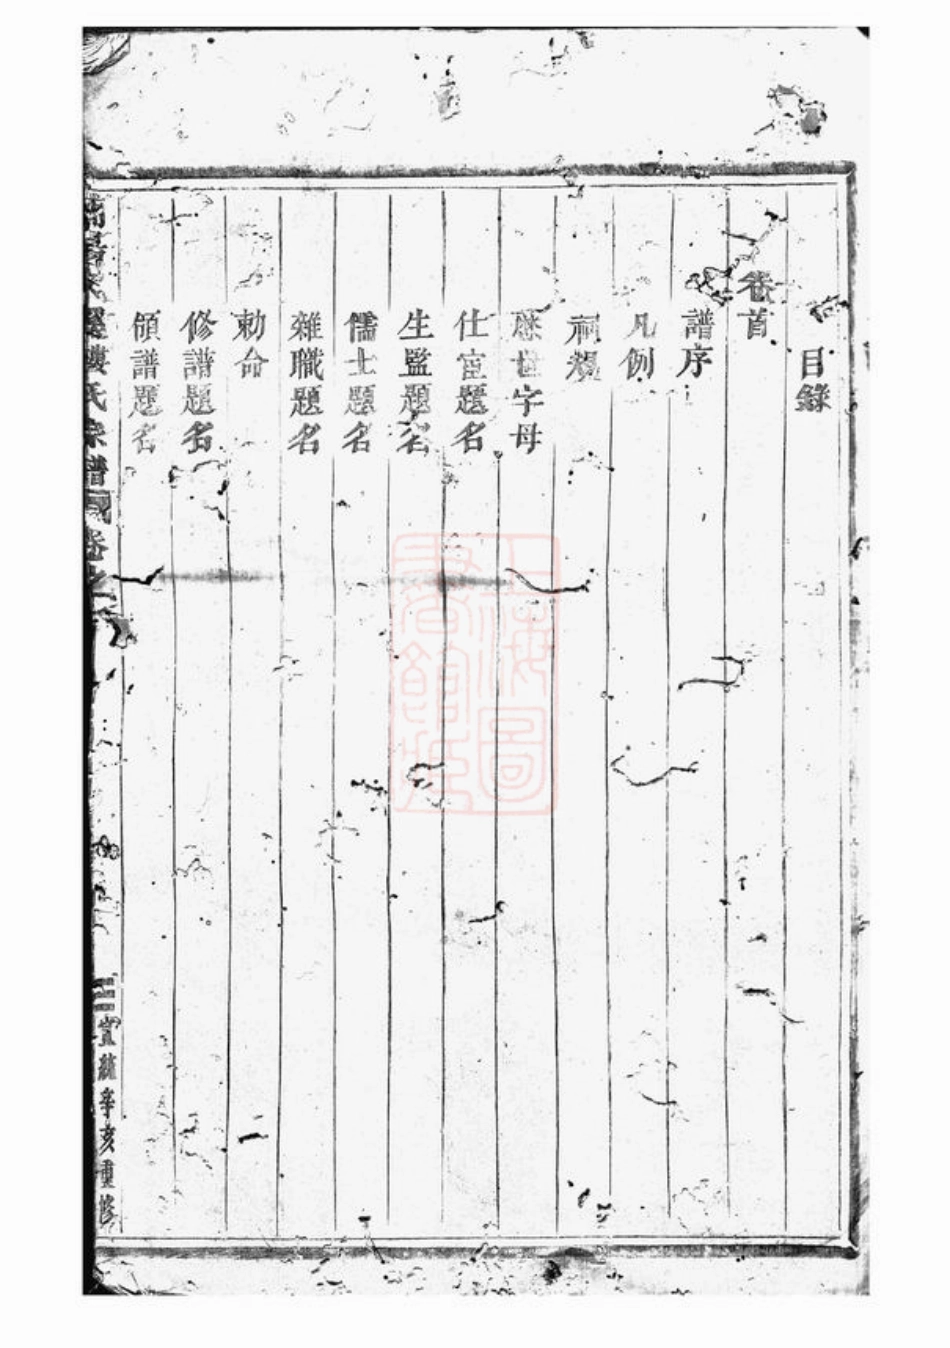 目錄
卷首
譜序
凡例
祠規
歷世字母
仕宦題名
生監題名
儒士題名
雜職題名
勅命
修譜題名
領譜題名
樓氏宗譜 卷之
宣統辛亥重修
上海圖書館藏